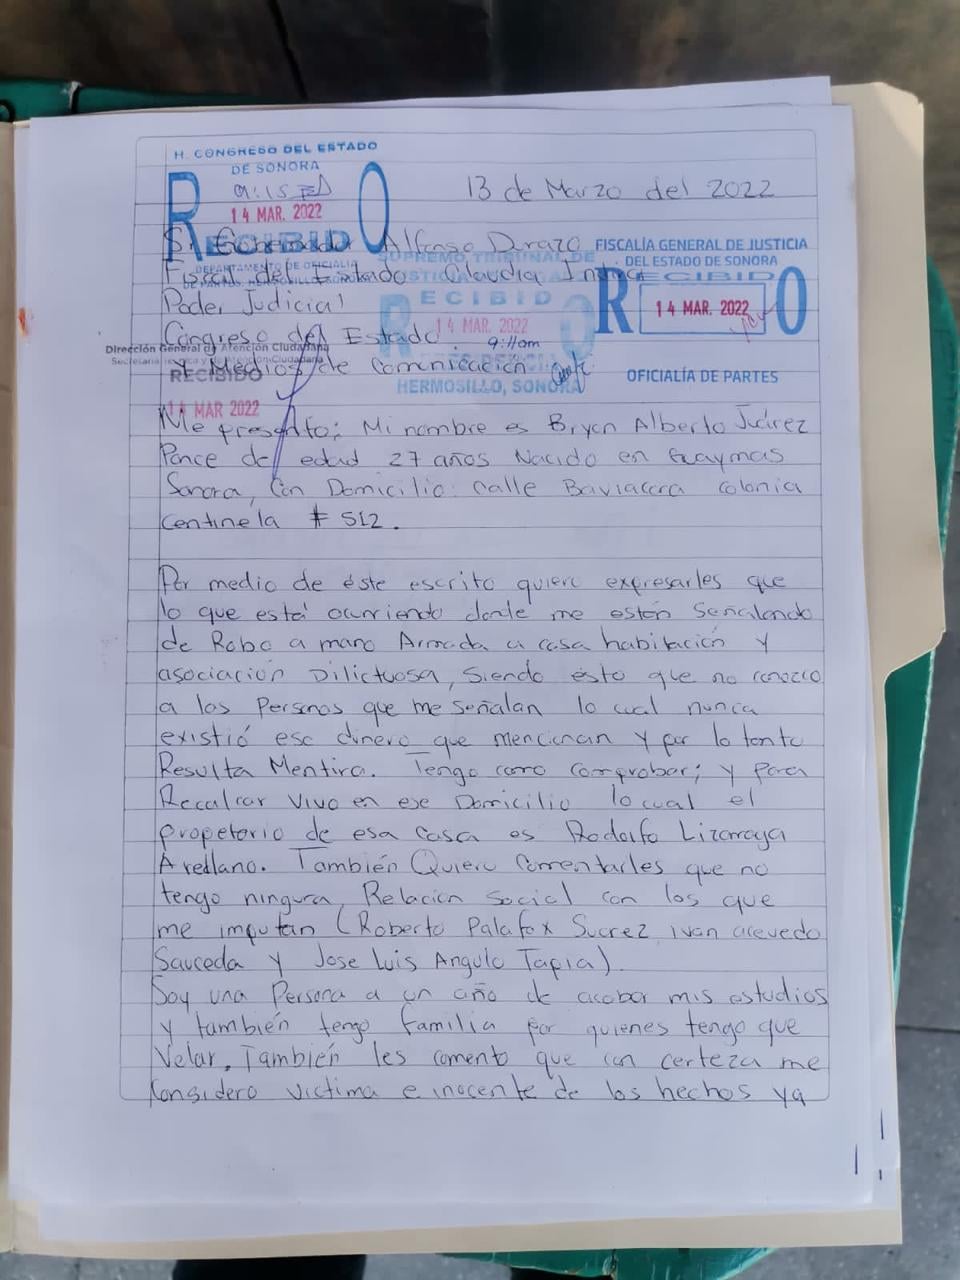 H. CONGRESO DEL ESTADO
DE SONORA
9:15
14 MAR. 2022
RECIBIDO
DEPARTAMENTO DE OFICIALIA
13 de Marzo del 2022
Sr. Gobernador Alfonso Durazo
Fiscal del Estado Claudia Indira
Poder Judicial
Congreso del Estado.
y Medios de Comunicación
SUPREMO TRIBUNAL DE
RECIBIDO
14 MAR. 2022
9:11am
HERMOSILLO, SONORA
FISCALÍA GENERAL DE JUSTICIA
DEL ESTADO DE SONORA
RECIBIDO
14 MAR. 2022
OFICIALÍA DE PARTES
Dirección General de Atención Ciudadana
RECIBIDO
14 MAR 2022
Me presento: Mi nombre es Bryan Alberto Juárez
Ponce de edad 27 años Nacido en Guaymas
Sonora, Con Domicilio: calle Baviacora colonia
Centinela # 512.
Por medio de éste escrito quiero expresarles que
lo que está ocurriendo donde me están Señalando
de Robo a mano Armada a casa habitación y
asociación Dilictuosa, Siendo ésto que no conozco
a las Personas que me Señalan lo cual nunca
existió ese dinero que mencionan y por lo tanto
Resulta Mentira. Tengo como comprobar; y para
Recalcar Vivo en ese Domicilio lo cual el
propetario de esa Casa es Rodolfo Lizarraga
Arellano. También Quiero Comentarles que no
tengo ninguna Relación Social con los que
me imputan (Roberto Palafox Suarez, ivan acevedo
Sauceda y Jose Luis Angulo Tapia).
Soy una Persona a un año de acabar mis estudios
y también tengo familia por quienes tengo que
Velar. También les comento que con certeza me
Considero victima e inocente de los hechos ya